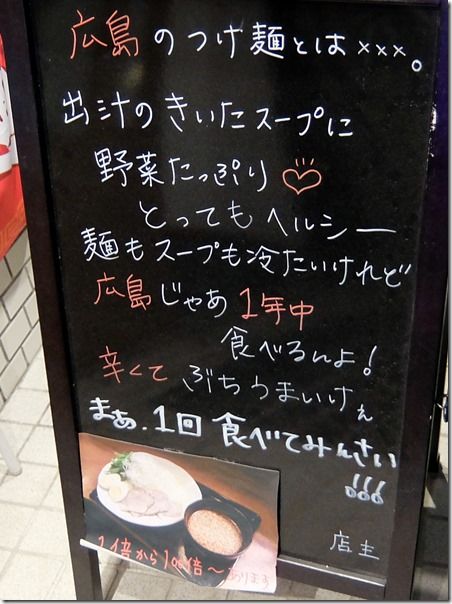 広島のつけ麺とは×××。
出汁のきいたスープに
野菜たっぷり
とってもヘルシー
麺もスープも冷たいけれど
広島じゃあ1年中
食べるんよ!
辛くて ぶちうまいけぇ
まぁ.1回 食べてみんさい
!!!
店主
1倍から100倍〜あります